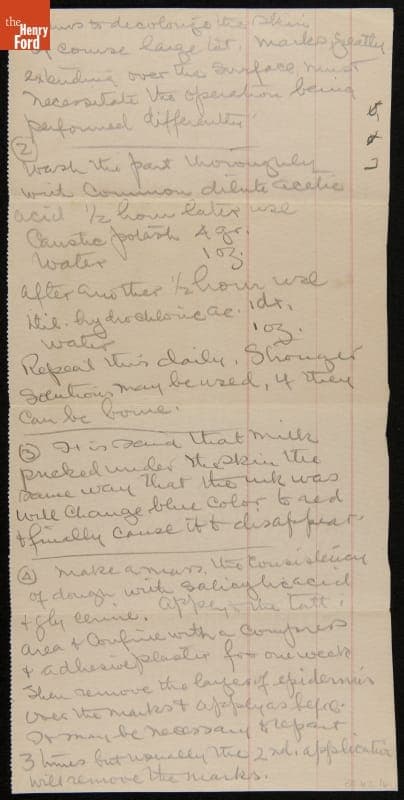 the
Henry
Ford
to decolorize the skin
of course large tat. marks, greatly
extending over the surface must
necessitate the operation being
performed differently.
2
Wash the part thoroughly
with common dilute acetic
acid 1/2 hour later use
Caustic potash 4 gr.
Water 1 oz.
after another 1/2 hour use
dil. hydrochloric ac. 1 dr.
Water 1 oz.
Repeat this daily. Stronger
solutions may be used, if they
can be borne.
3 It is said that milk
pricked under the skin the
same way that the ink was
will change blue color to red
& finally cause it to disappear.
4 Make a mass, the consistency
of dough with salicylic acid
& glycerine. apply to the
area & confine with a compress
& adhesive plaster for one week
Then remove the layer of epidermis
over the marks & apply as before.
It may be necessary to repeat
3 times but usually the 2nd. application
will remove the marks.